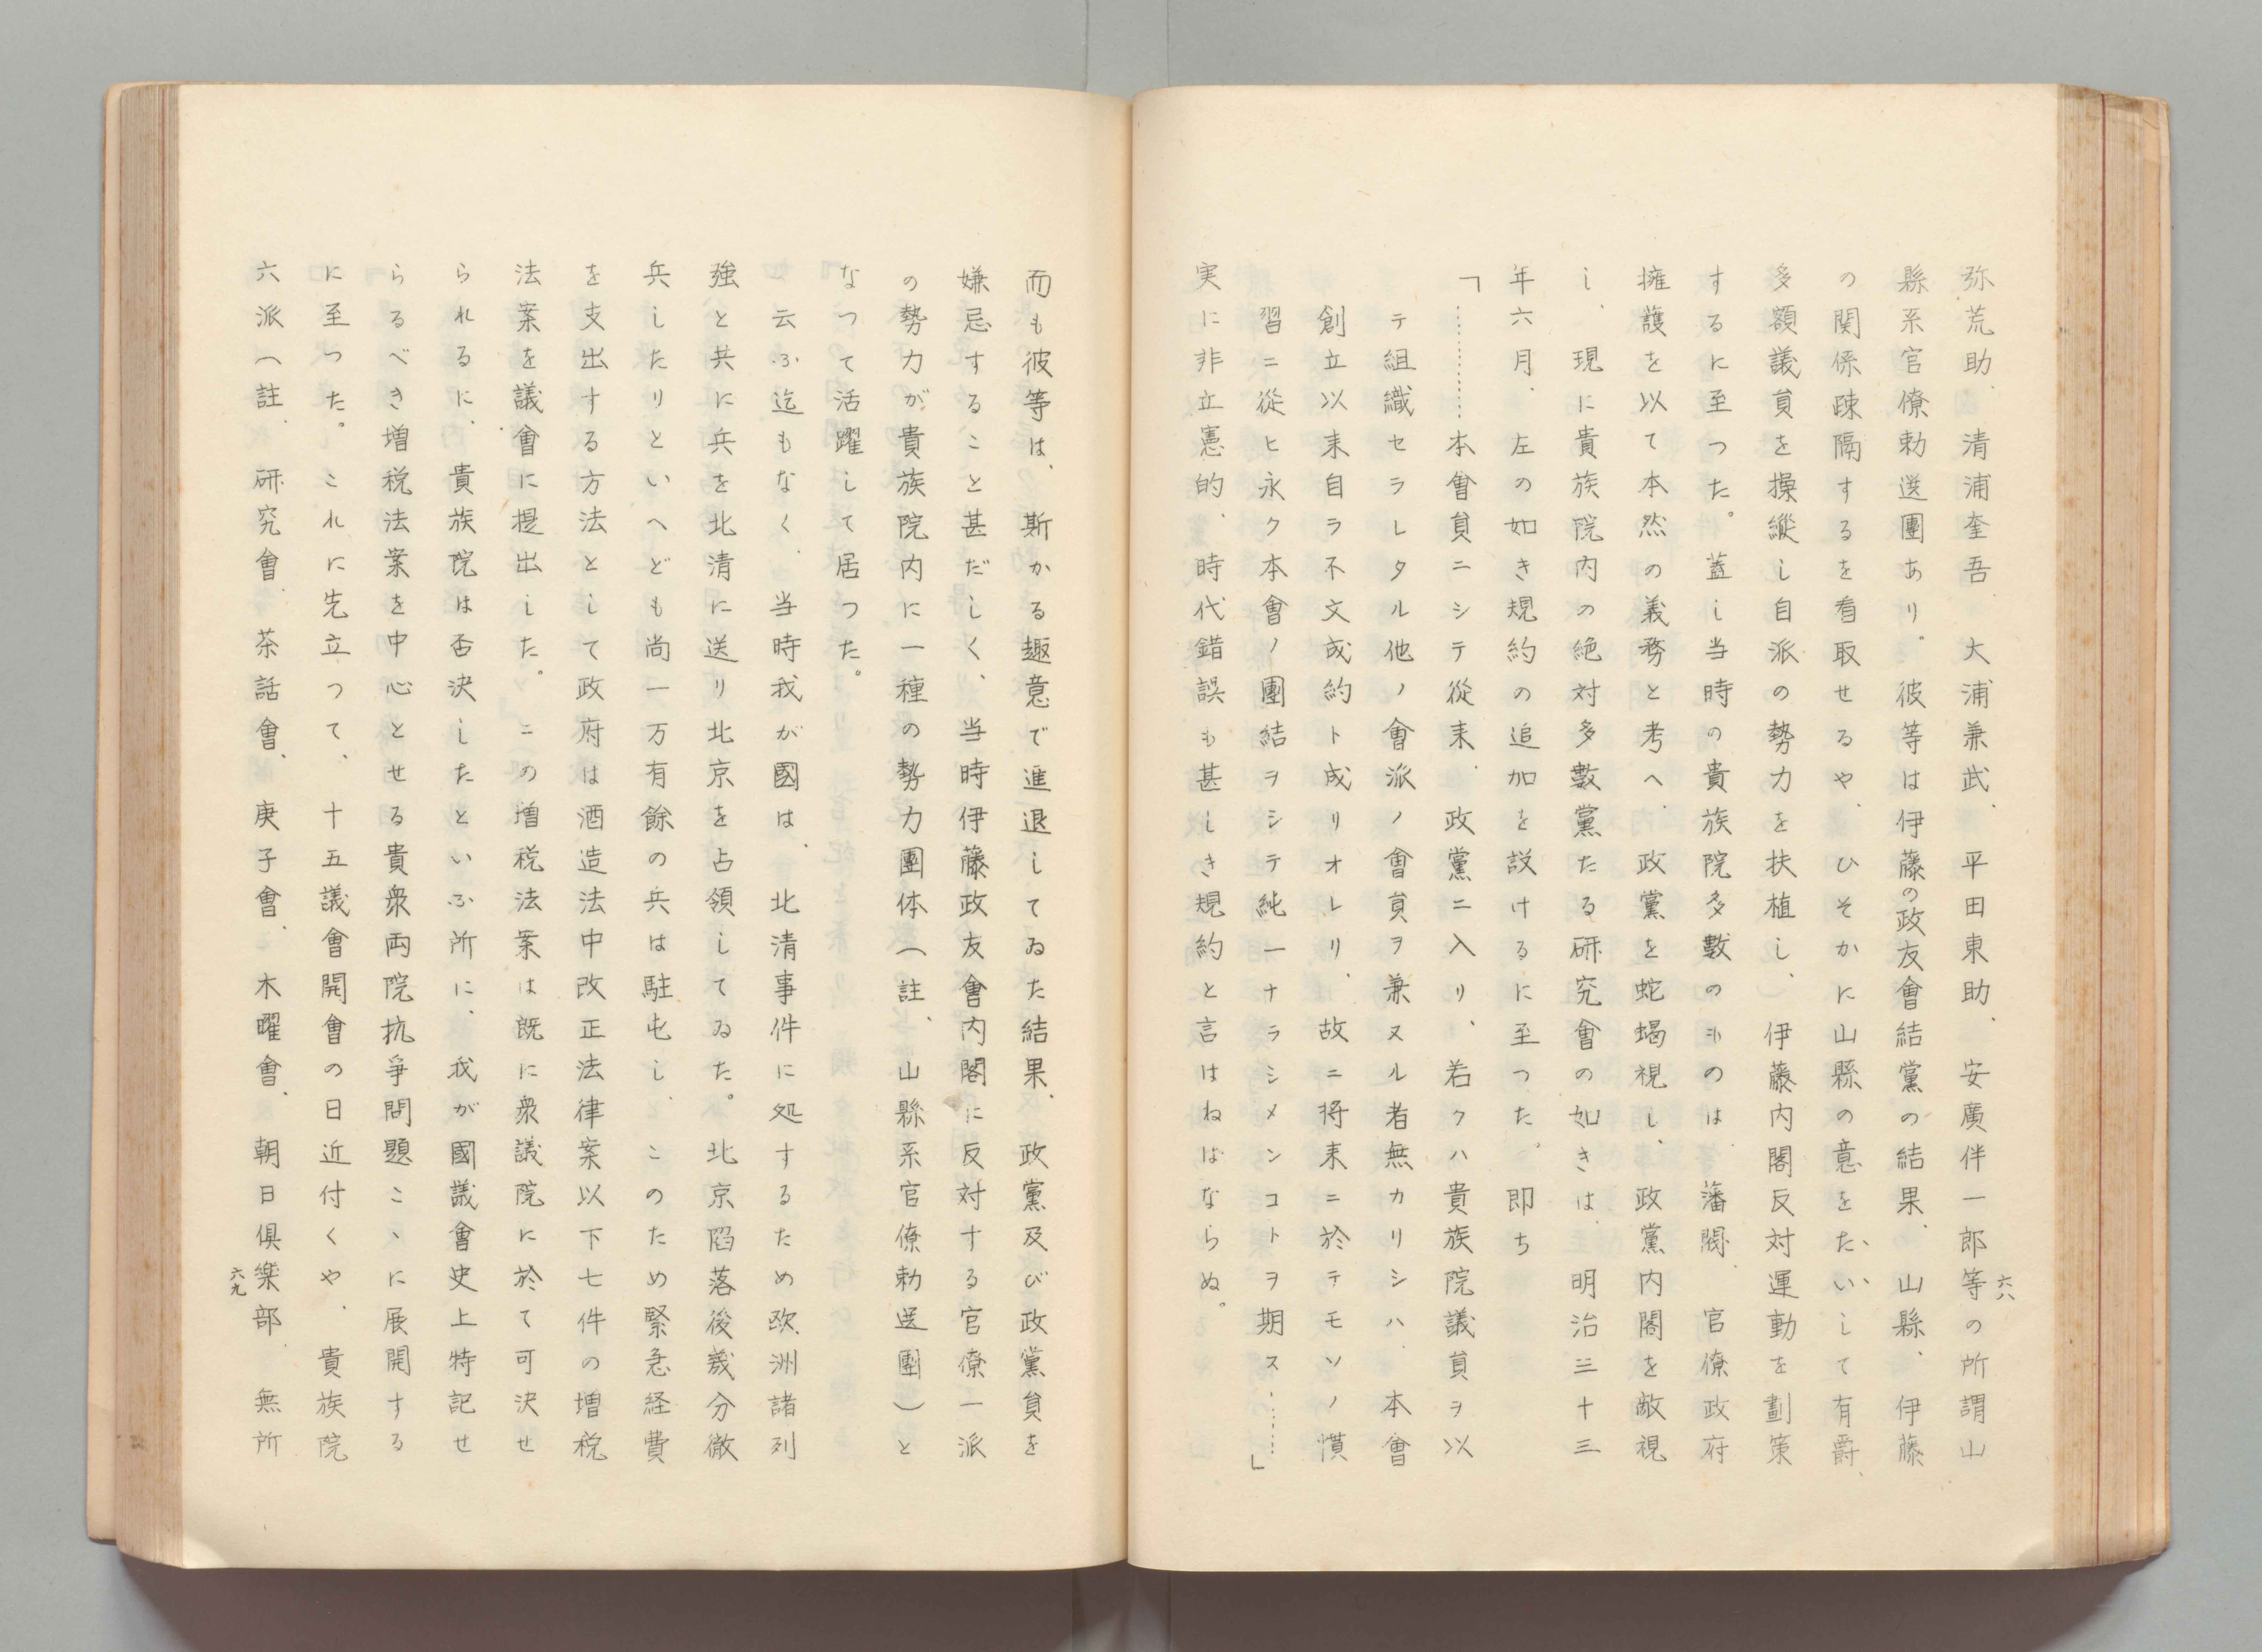 弥荒助、清浦奎吾、大浦兼武、平田東助、安廣伴一郎等の所謂山
縣系官僚勅選團あり。彼等は伊藤の政友會結黨の結果、山縣、伊藤
の関係疎隔するを看取せるや、ひそかに山縣の意をたいして有爵、
多額議員を操縦し自派の勢力を扶植し、伊藤内閣反対運動を劃策
するに至つた。蓋し当時の貴族院多數のものは、藩閥、官僚政府
擁護を以て本然の義務と考へ、政黨を蛇蝎視し、政黨内閣を敵視
し、現に貴族院内の絶対多數黨たる研究會の如きは、明治三十三
年六月、左の如き規約の追加を設けるに至つた。即ち
「…………本會員ニシテ從来、政黨ニ入リ、若クハ貴族院議員ヲ以
テ組織セラレタル他ノ會派ノ會員ヲ兼ヌル者無カリシハ、本會
創立以来自ラ不文成約ト成リオレリ、故ニ将来ニ於テモソノ慣
習ニ從ヒ永ク本會ノ團結ヲシテ純一ナラシメンコトヲ期ス……」
実に非立憲的、時代錯誤も甚しき規約と言はねばならぬ。
六八
而も彼等は、斯かる趣意で進退してゐた結果、政黨及び政黨員を
嫌忌すること甚だしく、当時伊藤政友會内閣に反対する官僚一派
の勢力が貴族院内に一種の勢力團体（註、山縣系官僚勅選團）と
なつて活躍して居つた。
云ふ迄もなく、当時我が國は、北清事件に処するため欧洲諸列
強と共に兵を北清に送り北京を占領してゐた。北京陥落後幾分徹
兵したりといへども尚一万有餘の兵は駐屯し、このため緊急経費
を支出する方法として政府は酒造法中改正法律案以下七件の増税
法案を議會に提出した。この増税法案は既に衆議院に於て可決せ
られるに、貴族院は否決したといふ所に、我が國議會史上特記せ
らるべき増税法案を中心とせる貴衆両院抗爭問題こゝに展開する
に至つた。これに先立つて、十五議會開會の日近付くや、貴族院
六派（註、研究會、茶話會、庚子會、木曜會、朝日倶楽部、無所
六九